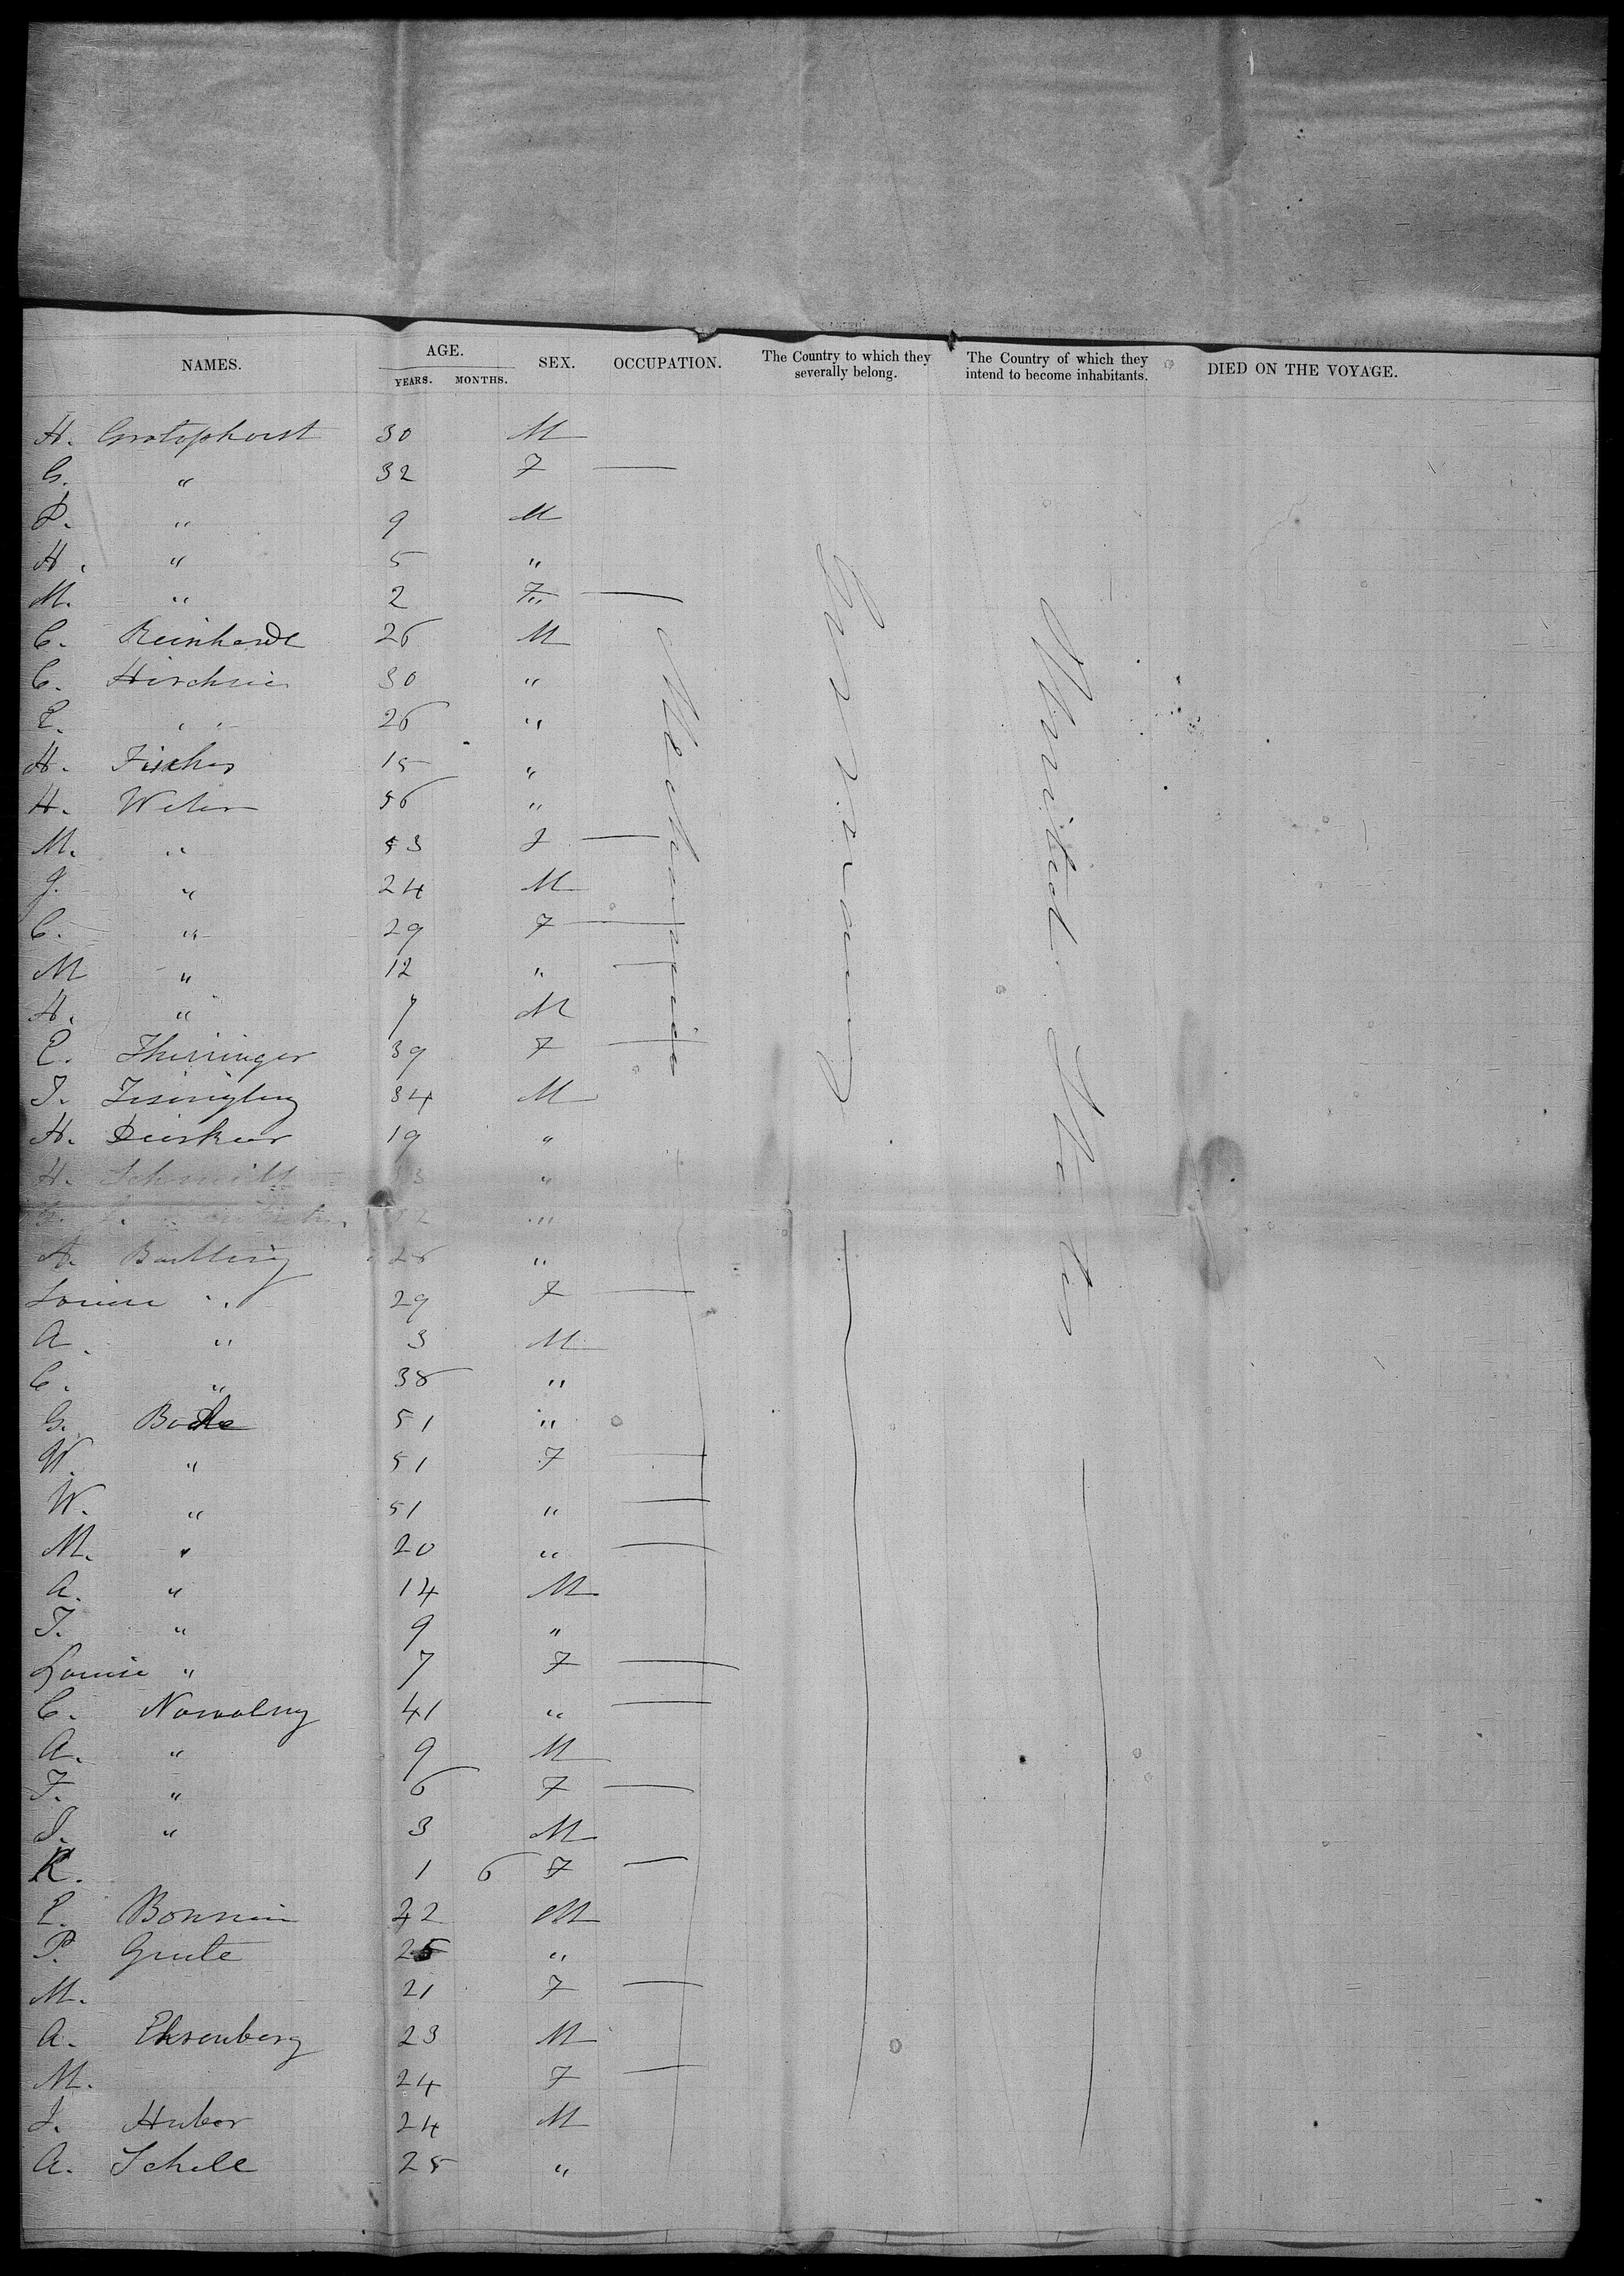 NAMES. AGE. SEX. OCCUPATION. The Country to which they severally belong. The Country of which they intend to become inhabitants. DIED ON THE VOYAGE.
YEARS. MONTHS.
H. Grotophorst 30 M
G. " 32 F —
D. " 9 M
H. " 5 "
M. " 2 F —
C. Reinhardt 26 M
C. 30 "
E. " 26 "
H. Fischer 15 "
H. 56 "
M. " 53 F —
J. " 24 M
C. " 29 F —
M " 12 " —
H. " 7 M
E. Thuringer 39 F —
T. 34 M
H. 19 "
H. Schmidt "
"
A. Bartling "
Louise " 29 F —
A. " 3 M
C. " 38 "
G. Bode 51 "
W. " 51 F —
W. " 51 " —
M. " 20 " —
A. " 14 M
F. " 9 "
Louise " 7 F —
C. Nowolny 41 " —
A. " 9 M
F. " 6 F —
J. " 3 M
K. 1 6 F —
E. Bonnin M
P. Grute 25 "
M. 21 F —
A. Ehrenberg 23 M
M. 24 F —
J. Huber 24 M
A. Schell 25 "
Mechanics
Germany
United States